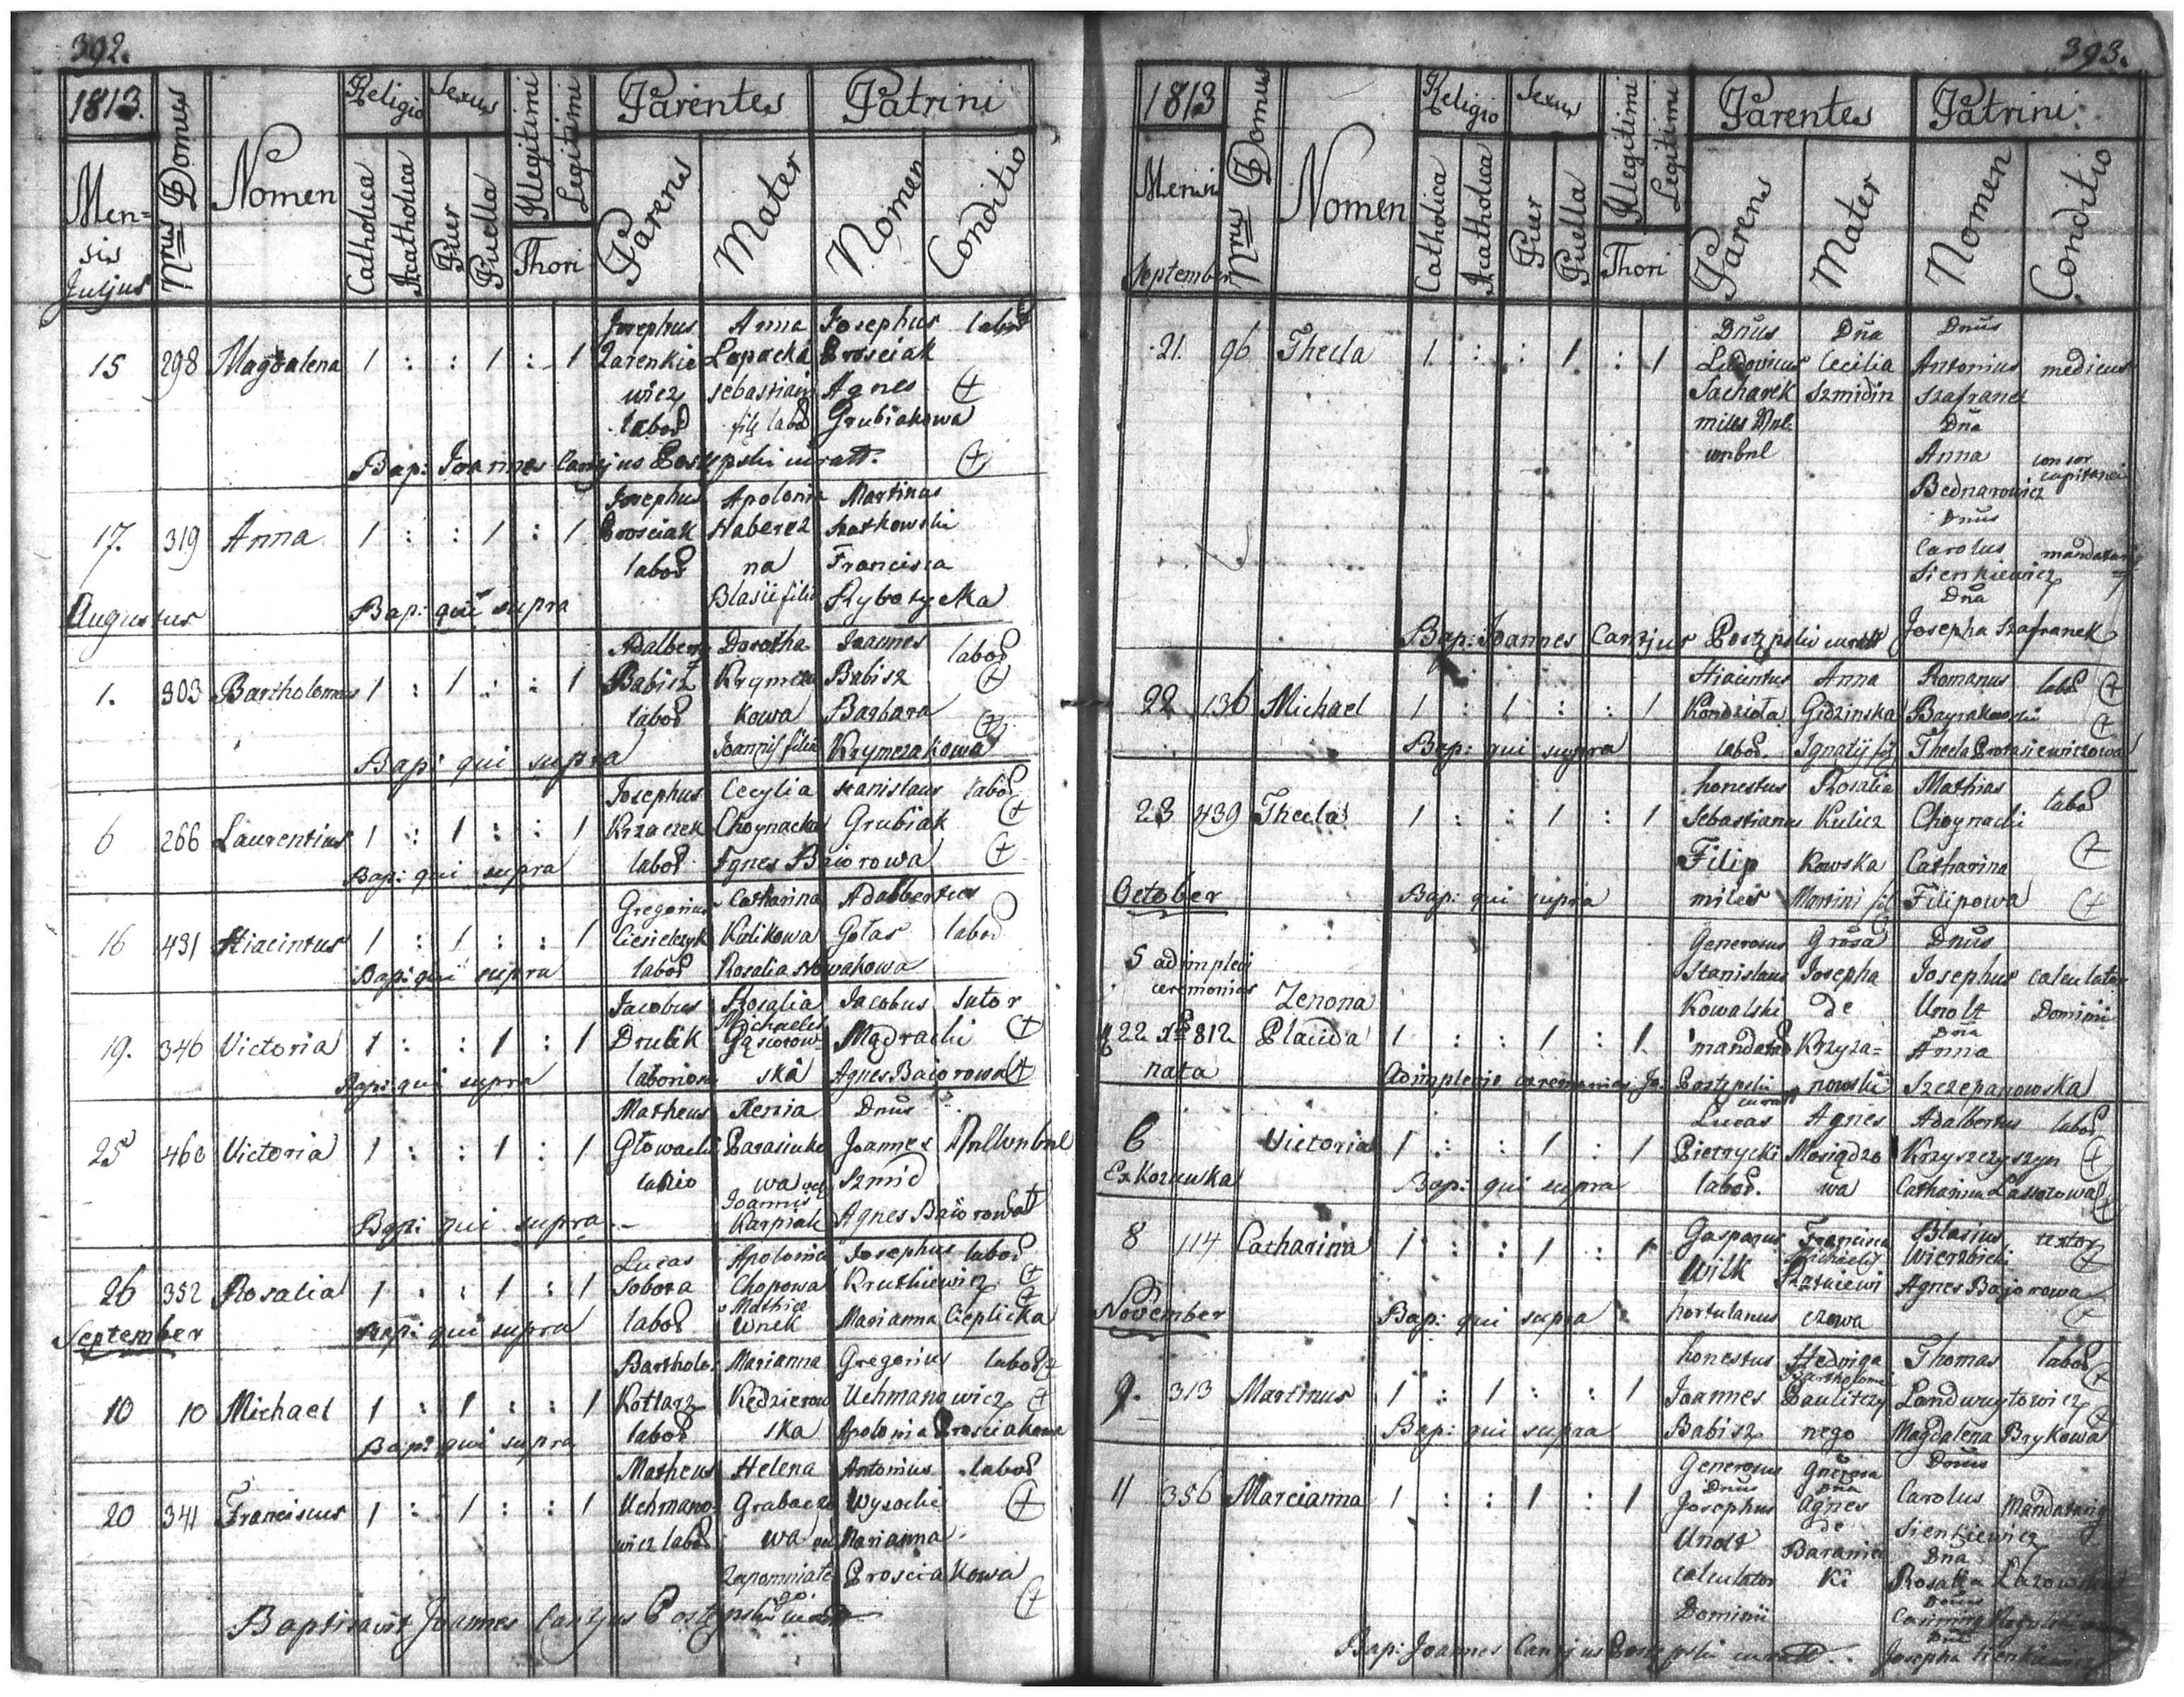 392.
1813.
Nrus Domus
Nomen
Religio
Sexus
Illegitimi
Legitimi
Thori
Parentes
Patrini
Men=
sis
Julius
Catholica
Acatholica
Puer
Puella
Parens
Mater
Nomen
Conditio
Josephus Anna Josephus labor
15 298 Magdalena 1 : : 1 : 1 Zarenkie Lopacka Prosciak
wicz Sebastiani Agnes +
labor fil labor Grubiakowa
Bap: Joannes Cantjus Postępski curatt. +
Josephus Apolonia Martinus
17. 319 Anna 1 : : 1 : 1 Prosciak Haberez Szatkowski
labor na Francisca
Augustus Bap: qui supra Blasii filia Rybotycka
Adalbert Dorotha Joannes labor
1. 303 Bartholomeus 1 : 1 : : 1 Babisz Krymcza Babisz +
labor kowa Barbara +
Bap: qui supra Joannis filia Krymczakowa
Josephus Cecylia Stanislaus labor
6 266 Laurentius 1 : 1 : : 1 Krzaczek Choynacka Grubiak +
Bap: qui supra labor Agnes Baiorowa +
Gregorius Catharina Adalbertus
16 431 Hiacintus 1 : 1 : : 1 Ciesielczyk Kulikowa Gołas labor
Bap: qui supra labor Rosalia Nowakowa
Jacobus Rosalia Jacobus Sutor
19. 346 Victoria 1 : : 1 : 1 Drubik Michaelis Gąsiorow- Mądracki +
Bap: qui supra laborios ska Agnes Baiorowa +
Matheus Xenia Dnus
25 460 Victoria 1 : : 1 : 1 Głowacki Parasiuko Joannes
wa Szmid
Joannis
Bap: qui supra Karpiak Agnes Baiorowa +
Lucas Apolonia Josephus labor
26 352 Rosalia 1 : : 1 : 1 Sobora Chopowa Krutkiewicz +
September Bap: qui supra labor Mathiae Wnek Marianna Cieplicka
Bartholo: Marianna Gregorius labor
10 10 Michael 1 : 1 : : 1 Kotlarz Kędzierow Uchmanowicz +
Bap: qui supra labor ska Apolonia Prosciakowa
Matheus Helena Antonius labor
20 341 Franciscus 1 : 1 : : 1 Uchmano- Grabaczo Wysocki +
wicz labor wa Marianna
Zapomniało Prosciakowa
Baptisavit Joannes Cantjus Postępski +
393.
1813
Nrus Domus
Nomen
Religio
Sexus
Illegitimi
Legitimi
Thori
Parentes
Patrini
Mensis
September
Catholica
Acatholica
Puer
Puella
Parens
Mater
Nomen
Conditio
Dnus Dna Dnus
21. 96 Thecla 1 : : 1 : 1 Ludovicus Cecilia Antonius medicus
Sacharek Szmidin Szafranek
miles Dna
Anna consor
Bednarowicz capitanei
Dnus
Carolus mandatarij
Sienkiewicz
Dna
Bap: Joannes Cantjus Postępski curatt Josepha Szafranek
Hiacintus Anna Romanus labor +
22 136 Michael 1 : 1 : : 1 Kondziola Gidzinska Bayrakowski +
Bap: qui supra labor. Ignatij fil Thecla Protasiewiczowa
honestus Rosalia Mathias labor
23 439 Thecla 1 : : 1 : 1 Sebastianus Kulicz Choynacki
Filip kowska Catharina +
October Bap: qui supra miles Martini fil Filipowa +
Generosus Grosa Dnus
5 adimpleti Stanislaus Josepha Josephus calculator
ceremonias Zenona Kowalski de Unolt Dominii
22 812 Placida 1 : : 1 : 1. mandatar Krzyża= Dna Anna
nata Adimplevit ceremonias Jo: Postępski curatt nowski Szczepanowska
Lucas Agnes Adalbertus labor
6 Victoria 1 : : 1 : 1 Pietrycki Mosiądzo Krzyszczyszyn +
Ex Kozuwka Bap: qui supra labor. wa Catharina Lassotowa +
Gasparus Francisca Blasius textor
8 114 Catharina 1 : : 1 : 1 Wilk Michaelis Wierzbicki +
Agnes Bajorowa
November Bap: qui supra hortulanus czowa +
honestus Hedviga Thomas labor +
9. 313 Martinus 1 : 1 : : 1 Joannes Bartholomei Pauliczy Landwuytowicz
Bap: qui supra Babisz nego Magdalena Brykowa
Generosus Gnerosa Dnus
11 356 Marcianna 1 : : 1 : 1 Dnus Josephus Dna Agnes Carolus Mandatarij
Unolt de Baranie Sienkiewicz
Dna
calculator ki Rosalia Lazowska
Dominii
Bap: Joannes Cantjus Postępski curatt. Josepha Sienkiewicz